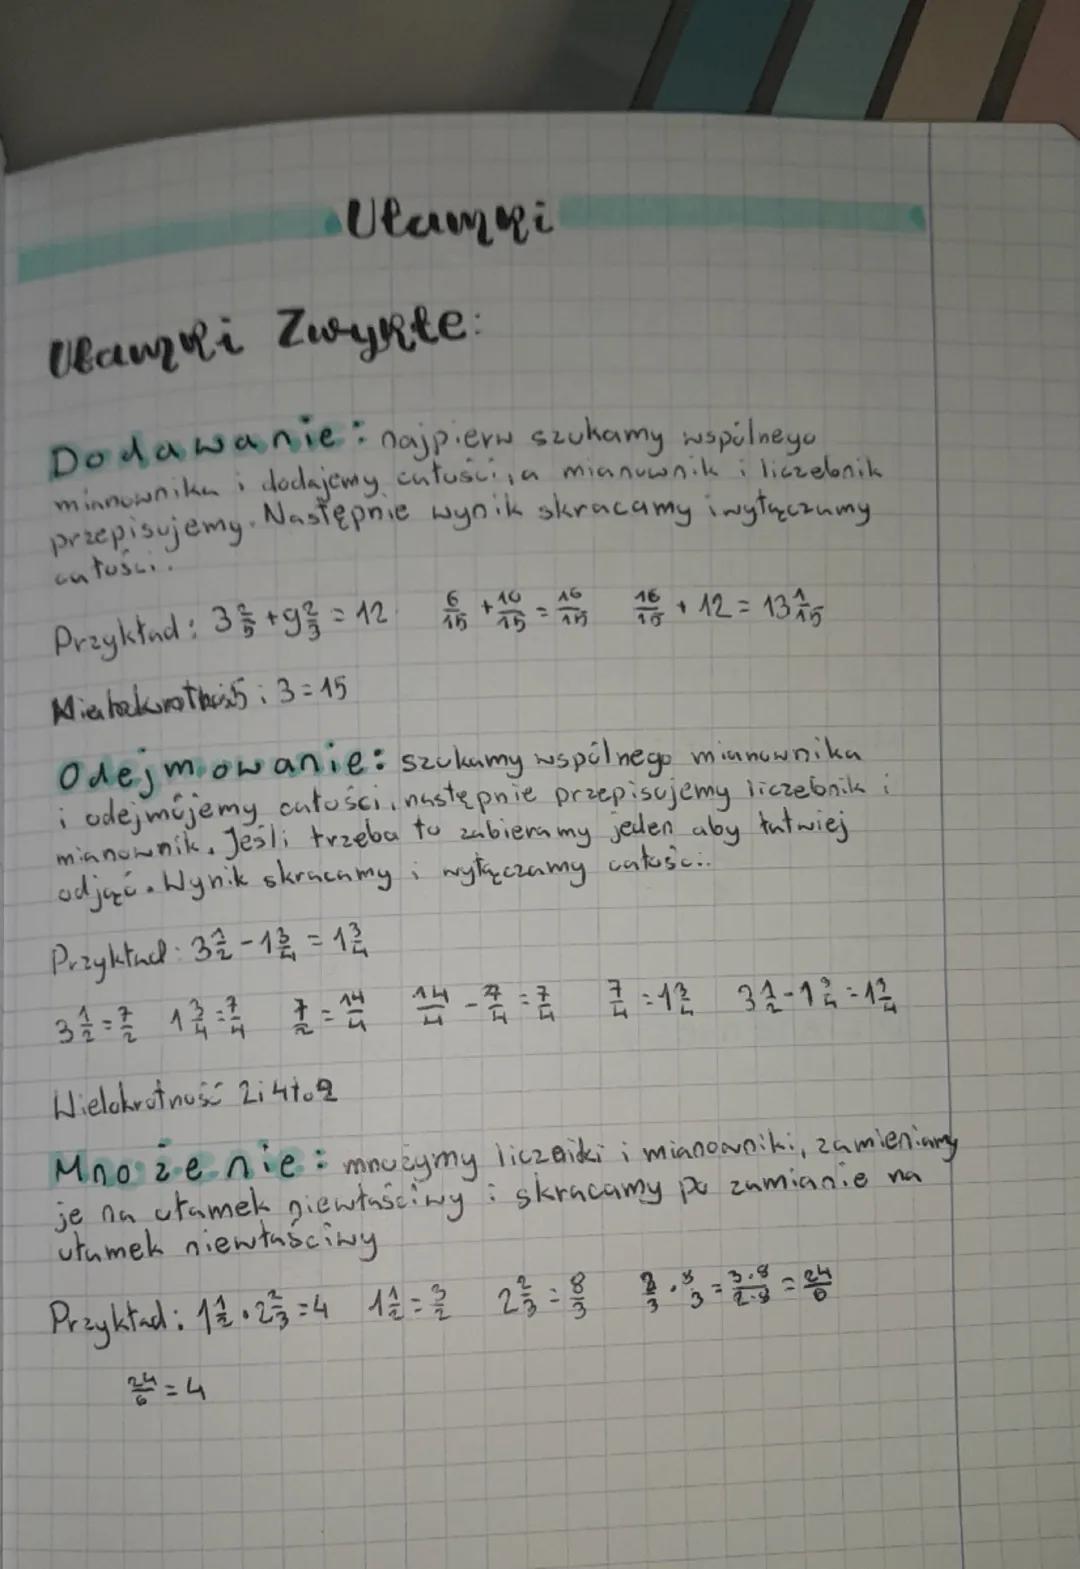 Ułamki
Ułamki Zwykłe:
Dodawanie: najpierw szukamy wspólnego
mianownika i dodajemy całości, a mianownik i liczebnik
przepisujemy. Następnie wynik skracamy i wyłączamy
całości.
Przykład: 3 2/5 + 9 2/3 = 12 6/15 + 10/15 = 16/15 16/15 + 12 = 13 1/15
5 i 3 = 15
Odejmowanie: szukamy wspólnego mianownika
i odejmójemy całości, następnie przepisujemy liczebnik i
mianownik. Jeśli trzeba to zabieramy jeden aby łatwiej
odjąć. Wynik skracamy i wyłączamy całości.
Przykład: 3 1/2 - 1 3/4 = 1 3/4
3 1/2 = 7/2 1 3/4 = 7/4 7/2 = 14/4 14/4 - 7/4 = 7/4 7/4 = 1 3/4 3 1/2 - 1 3/4 = 1 3/4
Wielokrotność 2 i 4 to
Mnożenie: mnożymy liczniki i mianowniki, zamieniamy
je na ułamek niewłaściwy i skracamy po zamianie na
ułamek niewłaściwy
Przykład: 1 1/2 · 2 2/3 = 4 1 1/2 = 3/2 2 2/3 = 8/3 = 24/6
24/6 = 4